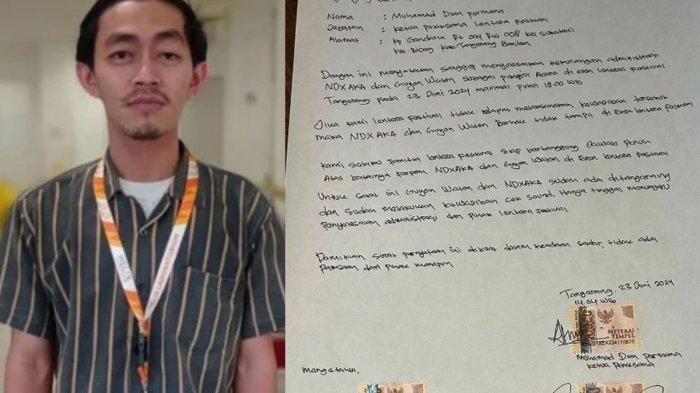 Nama : Muhamad Dian Permana
Jabatan : Ketua pelaksana lentera Festival
Alamat : Kp Gandaria Rt 004 Rw 008 kel
kec kab Tangerang Banten
Dengan ini menyatakan sanggup menyelesaikan kekurangan administrasi
NDXAKA dan Guyon Waton sebagai pengisi Acara di even lentera Festival
Tangerang pada 23 Juni 2024 maximal pukul 18:00 WIB
Jika kami lentera Festival tidak dapat melaksanakan kewajiban tersebut
maka NDXAKA dan Guyon Waton Berhak tidak tampil di Even lentera Festival
Kami selaku panitia lentera Festival siap bertanggung Jawab Penuh
Atas batalnya NDXAKA dan Guyon Waton di Even lentera Festival
Untuk saat ini Guyon Waton dan NDXAKA sudah ada ditangerang
dan sudah melakukan kewajiban cek sound, Hanya tinggal menunggu
Penyelesaian administrasi dari pihak lentera Festival
Demikian surat pernyataan ini dibuat dalam keadaan sadar, tidak ada
paksaan dari pihak manapun
Tangerang, 23 Juni 2024
14.04 WIB
METERAI
TEMPEL
Mohamad Dian Permana
ketua Pelaksana
Mengetahui,